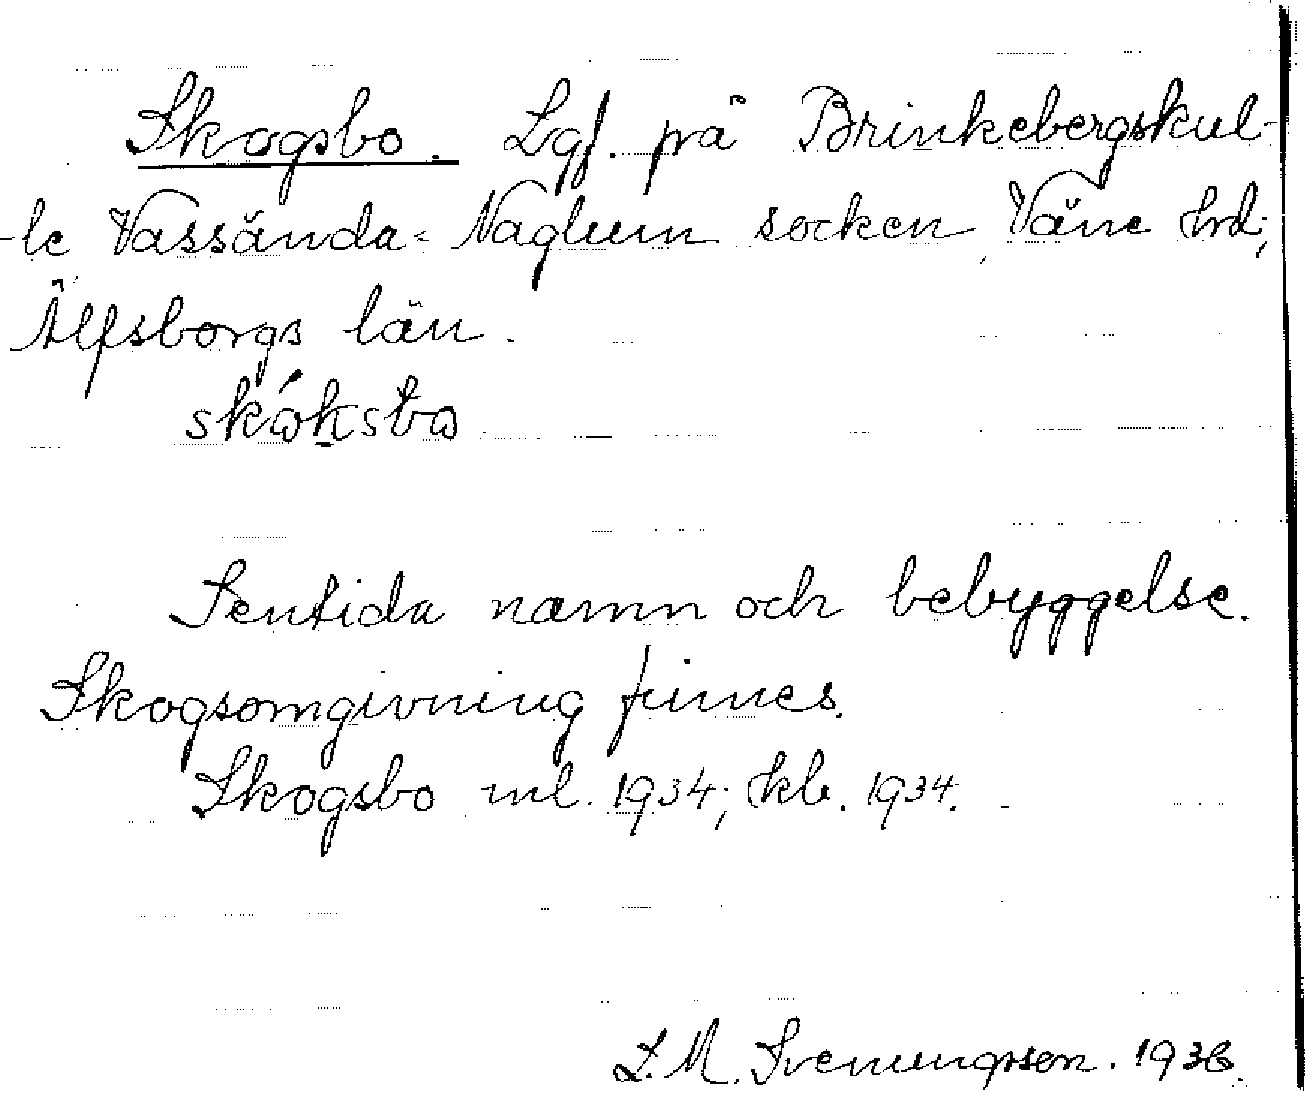 Skogsbo. Lgf. på Brinkebergskul-
-le Vassända-Naglum socken, Väne hrd;
Älfsborgs län.
skókstɷ
Sentida namn och bebyggelse.
Skogsomgivning finnes.
Skogsbo ml. 1934; kb. 1934.
L. M. Svenungsson. 1936.